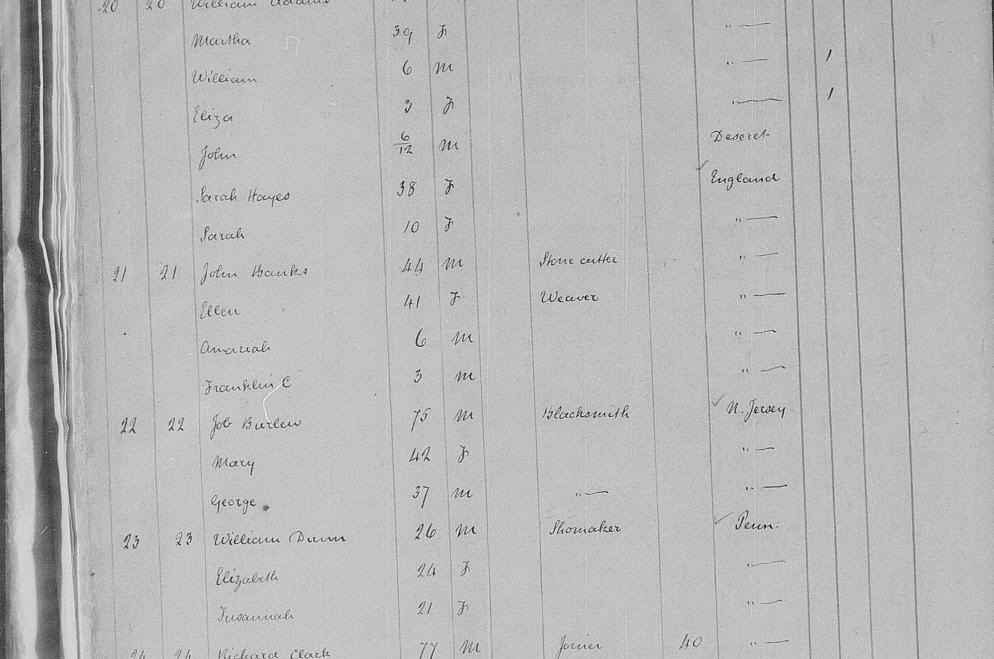 20 20 William Adams
Martha 39 F " —
William 6 M " — 1
Eliza 3 F " — 1
John 6/12 M Deseret
Sarah Hayes 38 F ✓ England
Sarah 10 F " —
21 21 John Banks 44 M Stone cutter " —
Ellen 41 F Weaver " —
Amariah 6 M " —
Franklin C 3 M " —
22 22 Job Burlew 75 M Blacksmith ✓ N. Jersey
Mary 42 F " —
George 37 M " — " —
23 23 William Dunn 26 M Shomaker ✓ Penn:
Elizabeth 24 F " —
Susannah 21 F " —
24 24 Richard Clark 77 M Joiner 40 " —